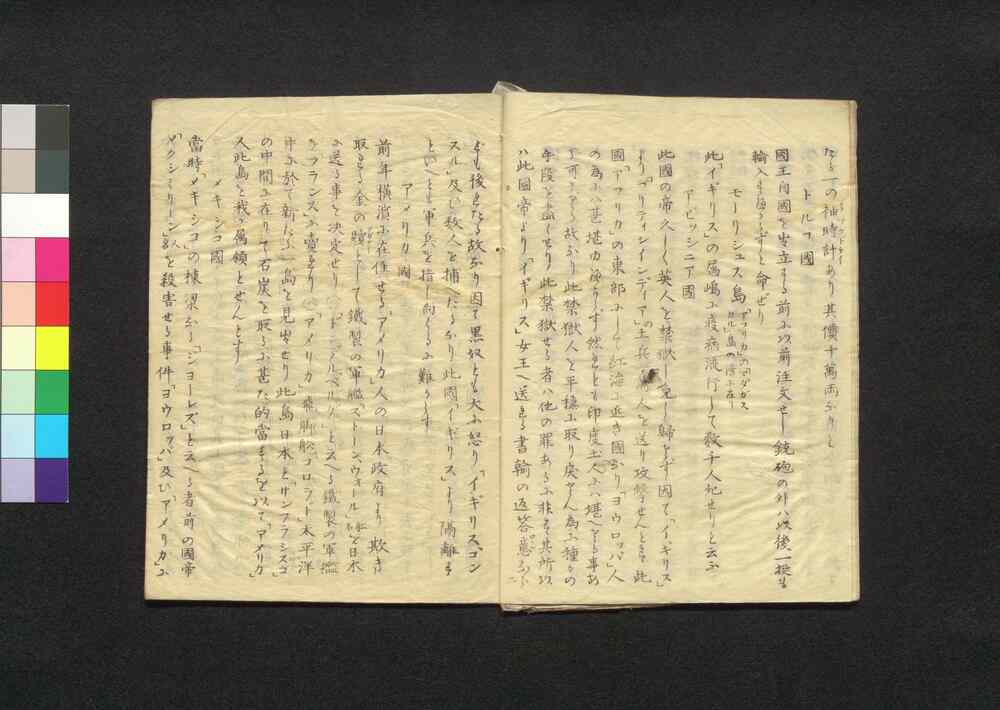 なる一の袖時計あり其價十萬両なりと
トルコ國
國王自國を出立する前に以前注文せし銃砲の外ハ以後一挺も
輸入すべからずと命ぜり
モーリシュス島 アフリカのマダガスカル島の傍に在り
此「イギリス」の属嶋に疫病流行して数千人死せりと云ふ
アビッシニア國
此國の帝久しく英人を禁獄し免し歸さず因て「イギリス」
より「ブリティシインディア」の土兵人を送り攻撃せんとす此
國「アフリカ」の東部にして紅海に近き國なり「ヨウロッパ」人
の為にハ甚堪ゆべからず然れども印度土人にハ堪へる事あ
る可きなり故に此禁獄人を平穏に取り戻さん為に種々の
手段を盡しをり此禁獄せる者ハ他の罪あるに非ず其所以
ハ此國帝より「イギリス」女王へ送れる書翰の返答意に
ども後れたる故なり因て黒奴とも大に怒り「イギリスゴン
スル」及び数人を捕へたるなり此國「イギリス」より隔離す
といへとも軍兵を指し向くるに難からす
アメリカ國
前年横濱に在住せる「アメリカ」人の日本政府より欺き
取たる金の贖として鐵製の軍艦「ストーンウォール」を日本
に送る事を決定せり「ドンデルベルグ」と云へる鐵製の軍艦
をフランスに賣たり「アメリカ」飛脚舩「コロラド」太平洋
中に於て新たに一島を見出せり此島日本と「サンフラシスコ」
の中間に在りて石炭を取るに甚た的當するを以て「アメリカ」
人此島を我か属領とせんとす
メキシコ國
當時「メキシコ」の棟梁なる「ジョーレズ」と云へる者前の國帝
「マクシミリーン」を殺害せる事件「ヨウロッパ」及ひ「アメリカ」に